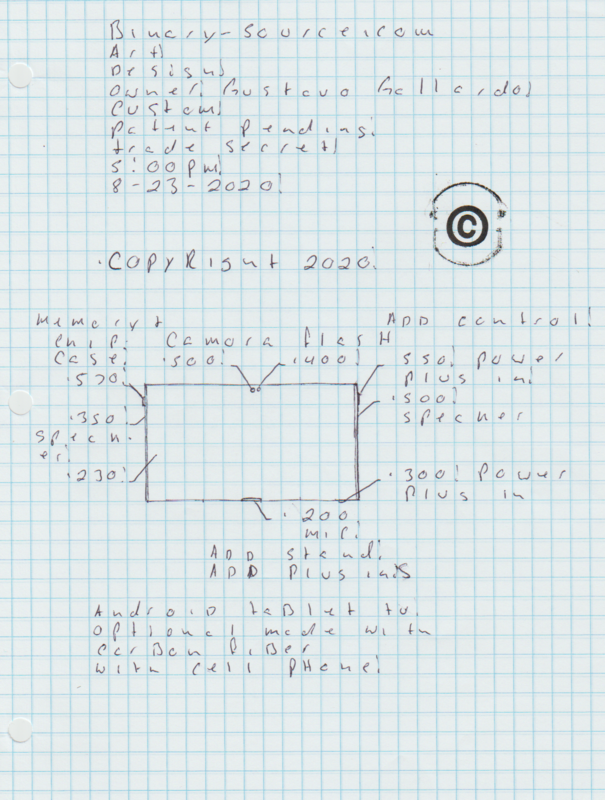 Binary-Source.com
Art!
Design!
Owner! Gustavo Gallardo!
Custom!
Patent Pending!
trade Secret!
5:00pm!
8-23-2020!
©
.COPYRight 2020!
Memory +
Chip!
Case!
.570!
Camora flash
.500!
.400!
ADD control!
550! Power
Plus in!
.500!
Specner
.350!
Specn.
er.
.230!
.300! Power
Plus in
.200
mic!
ADD Stand!
ADD Plus ins
Android tablet tv.
Optional made with
Carbon Fiber
with Cell Phone!